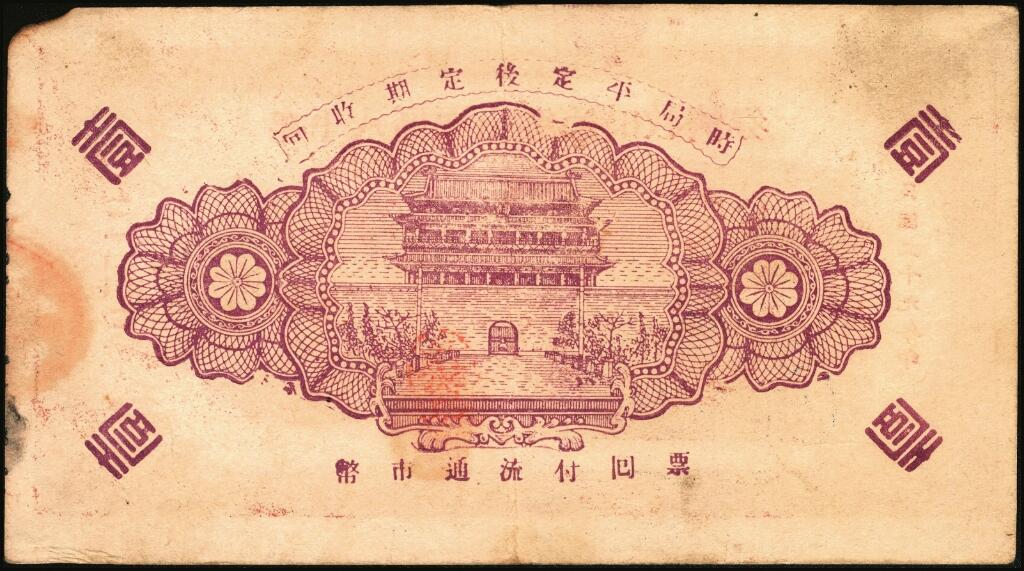 時局平定後定期收回
票回付流通市幣